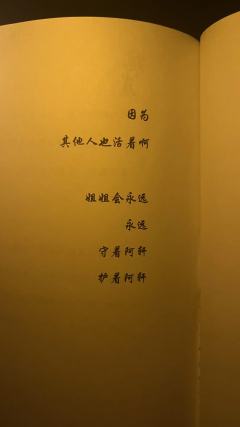 因为
其他人也活着啊
姐姐会永远
永远
守着阿轩
护着阿轩